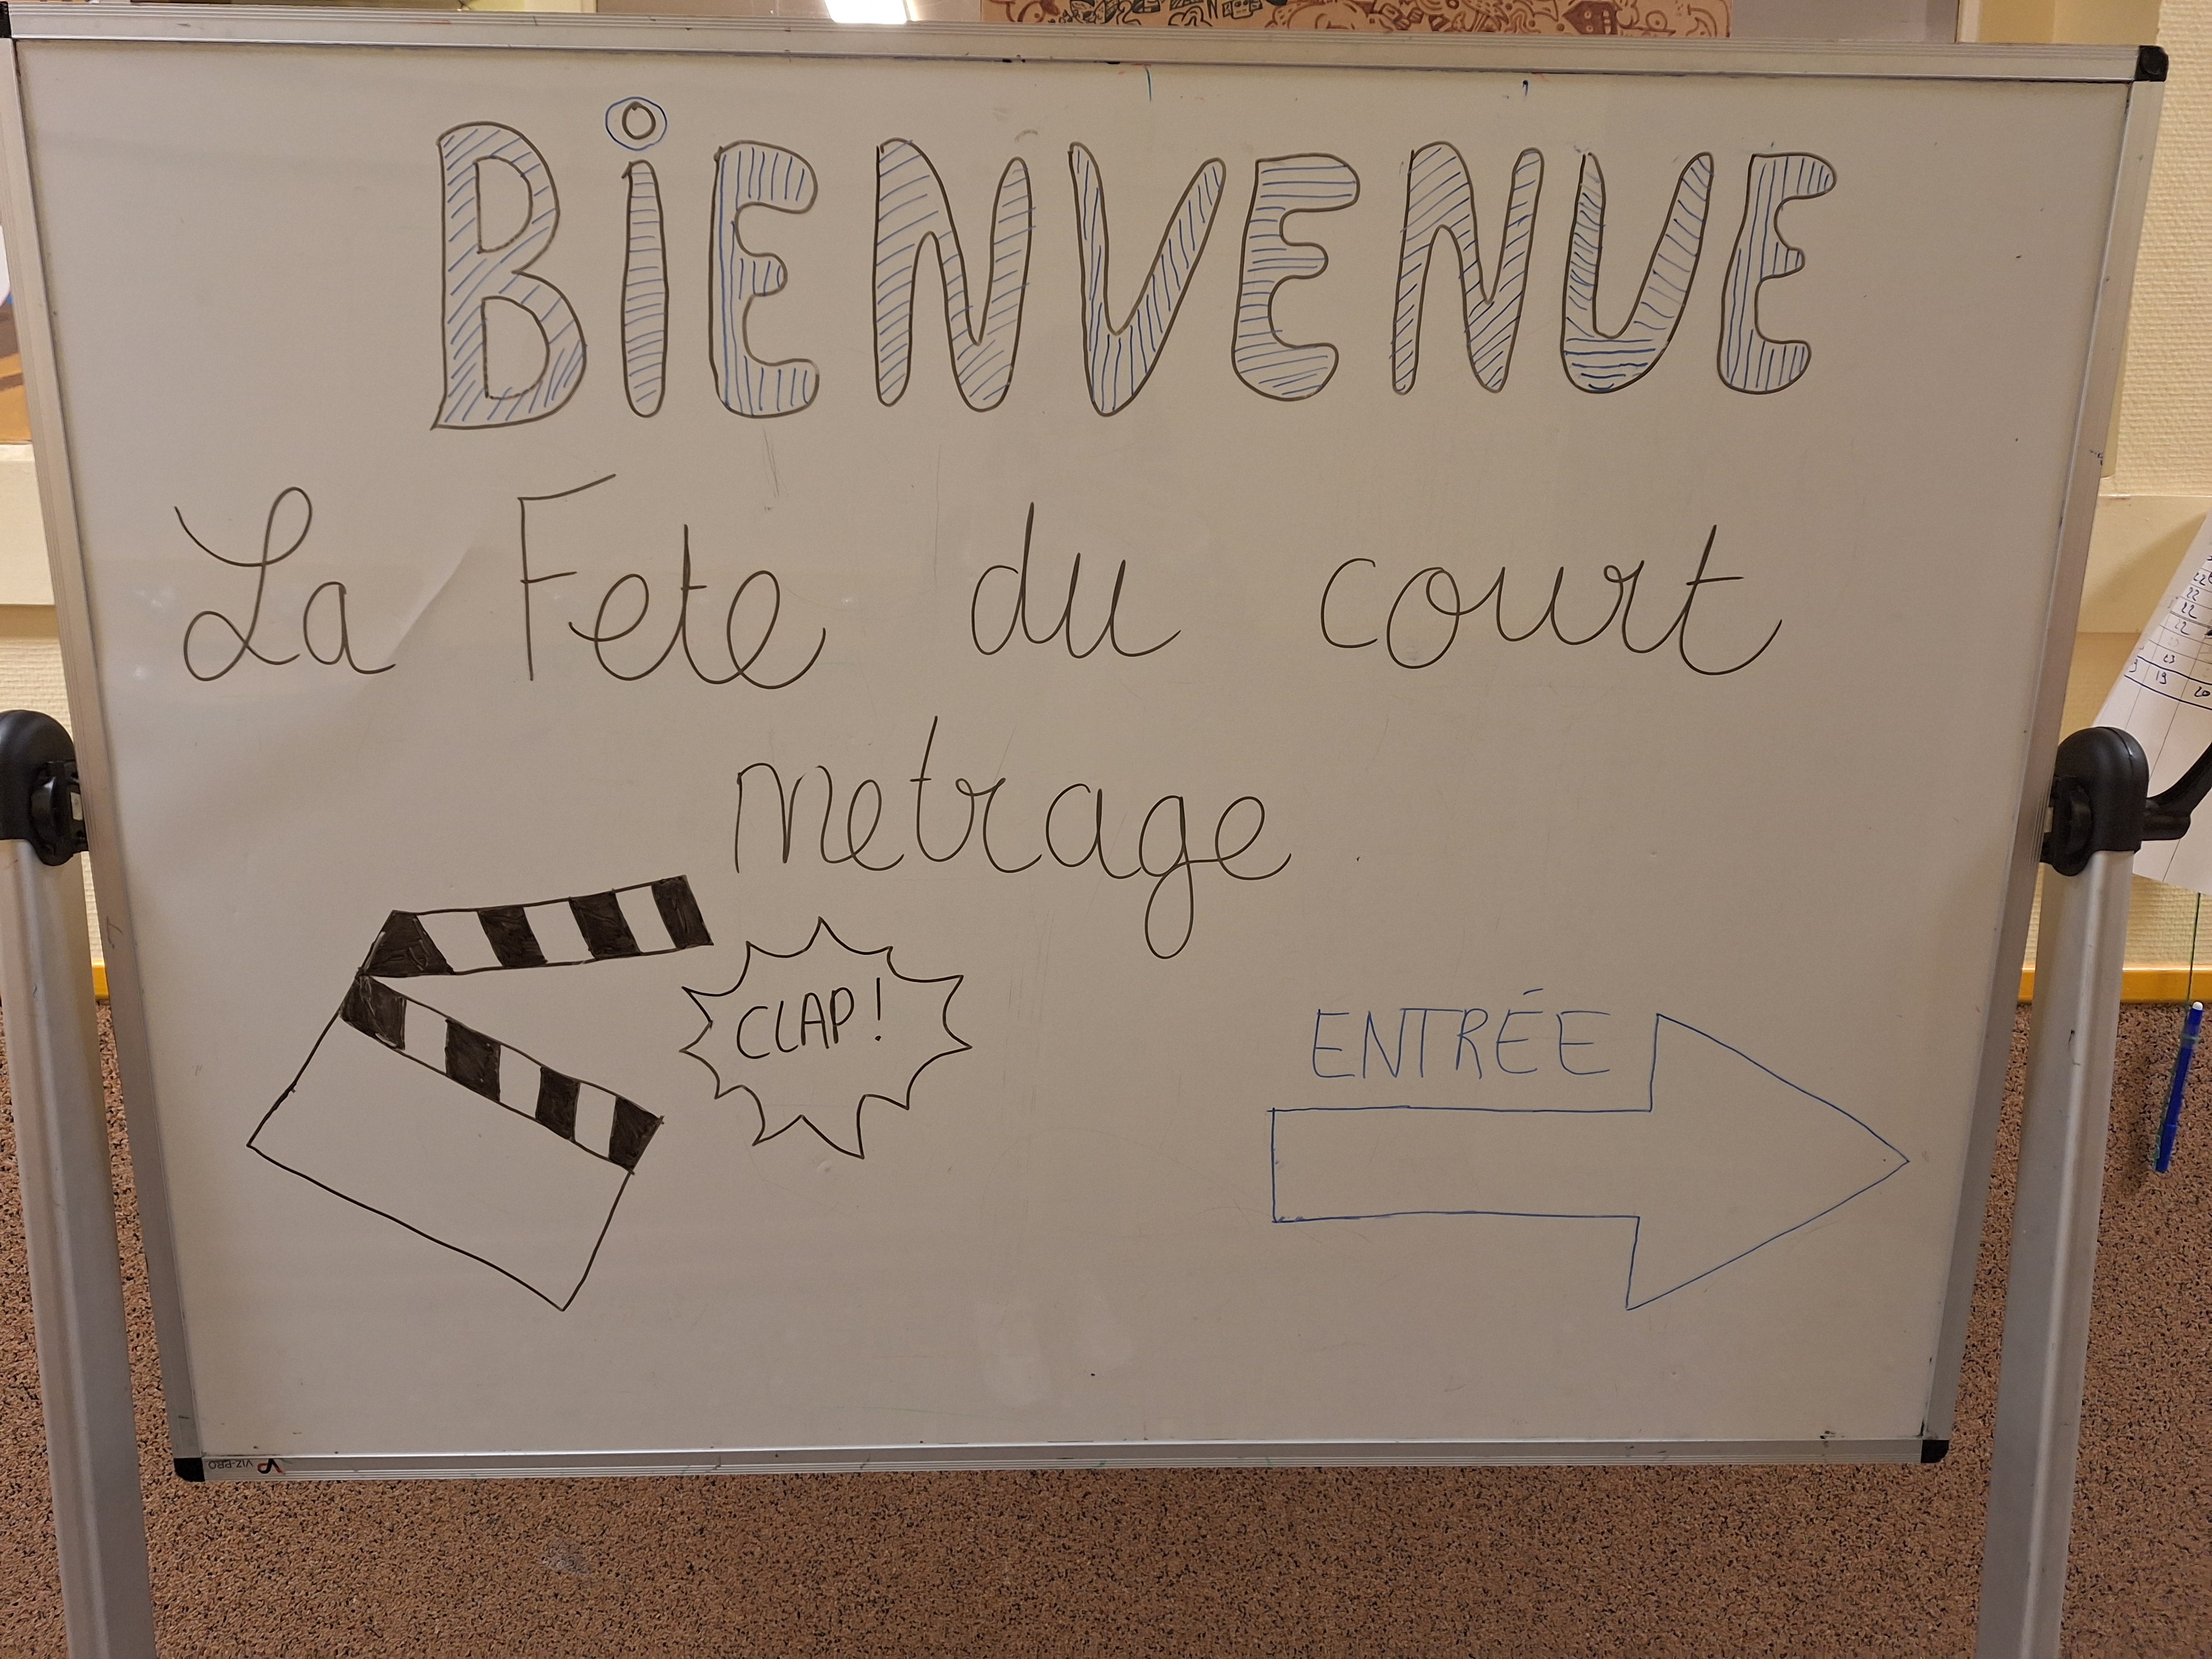 BiENVENUE
La Fete du court
metrage
CLAP !
ENTRÉE
VIZ-PRO